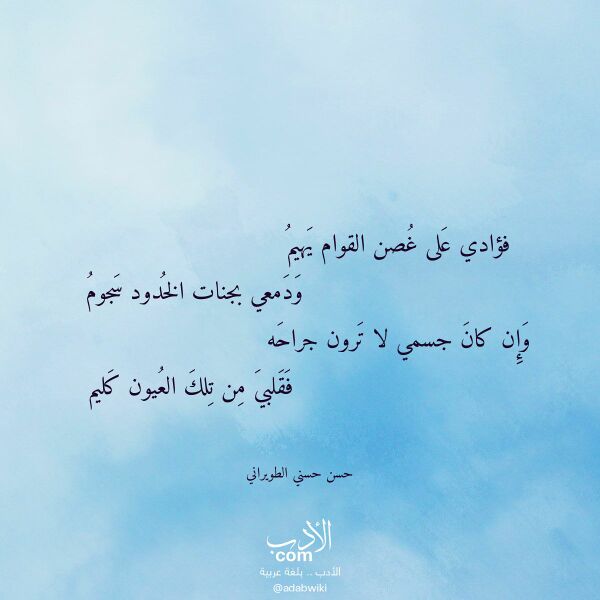 فؤادي عَلى غُصن القوام يَهيمُ
وَدَمعي بجنات الخُدود سَجومُ
وَإِن كانَ جسمي لا تَرون جراحَه
فَقَلبيَ مِن تِلكَ العُيون كَليم
حسن حسني الطويراني
الأدب
com
الأدب .. بلغة عربية
@adabwiki